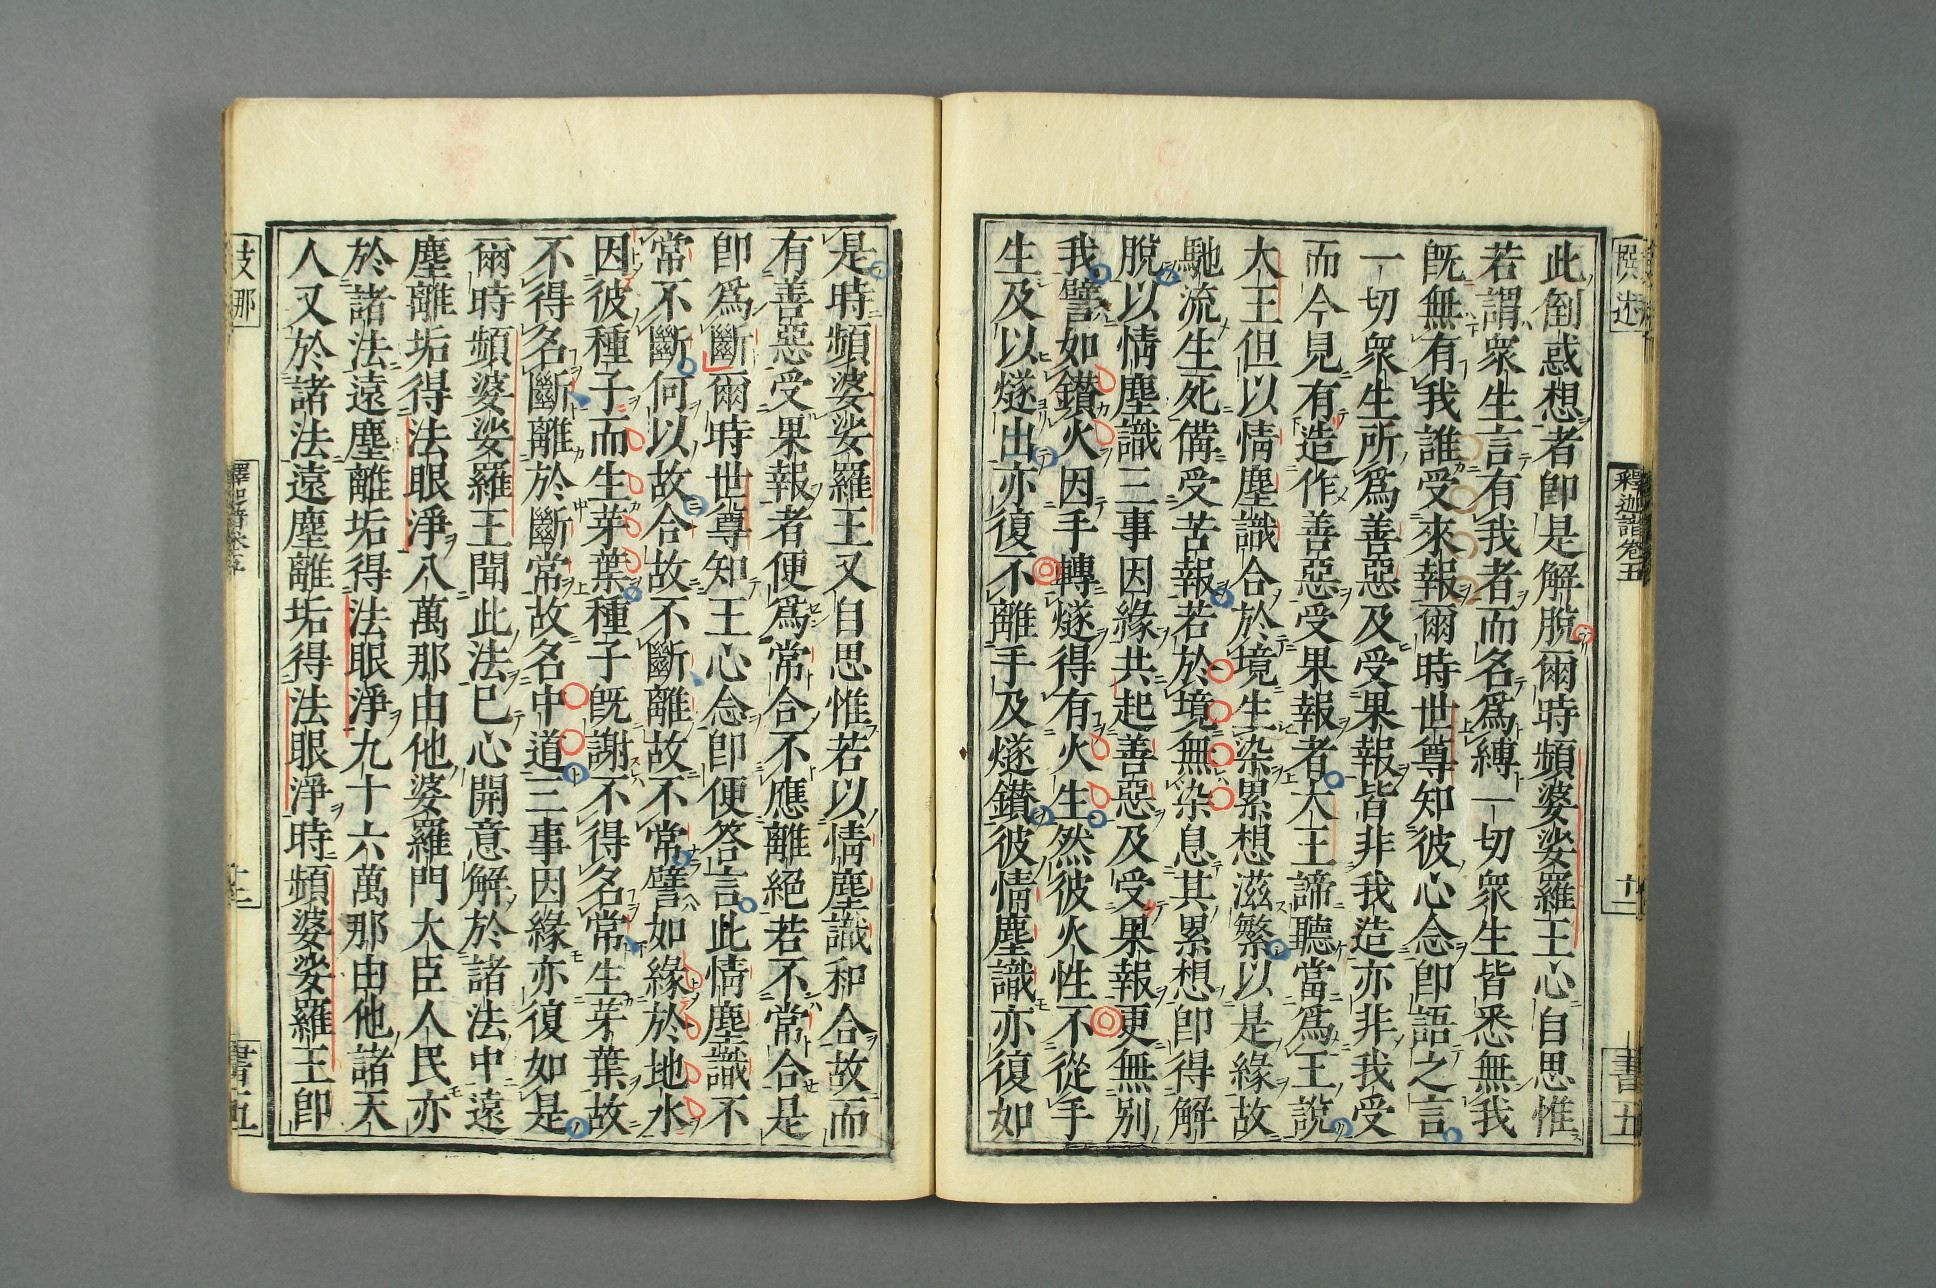 此倒惑想者即是解脫爾時頻婆娑羅王心自思惟
若謂衆生言有我者而名爲縛一切衆生皆悉無我
既無有我誰受來報爾時世尊知彼心念即語之言
一切衆生所爲善惡及受果報皆非我造亦非我受
而今見有造作善惡受果報者大王諦聽當爲王說
大王但以情塵識合於境生染累想滋繁以是緣故
馳流生死備受苦報若於境無染息其累想即得解
脫以情塵識三事因緣共起善惡及受果報更無別
我譬如鑚火因手轉燧得有火生然彼火性不從手
生及以燧出亦復不離手及燧鑚彼情塵識亦復如
釋迦譜卷五
書五
是時頻婆娑羅王又自思惟若以情塵識和合故而
有善惡受果報者便爲常合不應離絕若不常合是
即爲斷爾時世尊知王心念即便答言此情塵識不
常不斷何以故合故不斷離故不常譬如緣於地水
因彼種子而生芽葉種子既謝不得名常生芽葉故
不得名斷離於斷常故名中道三事因緣亦復如是
爾時頻婆娑羅王聞此法已心開意解於諸法中遠
塵離垢得法眼淨八萬那由他婆羅門大臣人民亦
於諸法遠塵離垢得法眼淨九十六萬那由他諸天
人又於諸法遠塵離垢得法眼淨時頻婆娑羅王即
書五